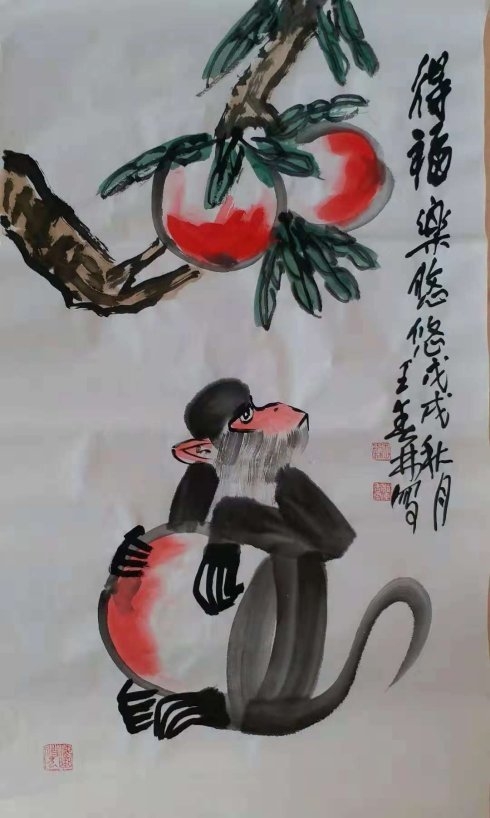 得福樂悠悠
戊戌秋月
王春林写